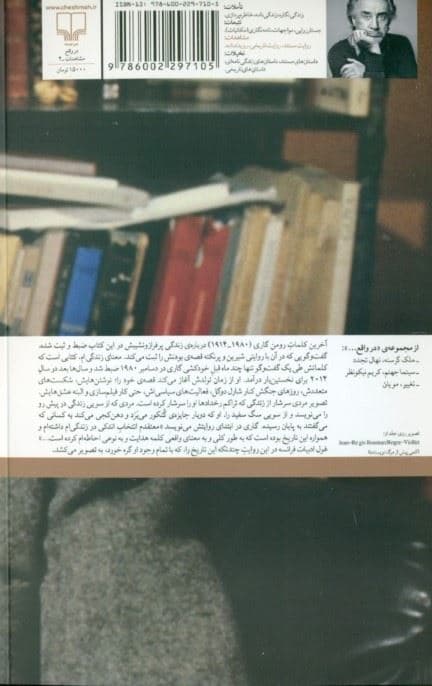 www.cheshmeh.ir
نشرچشمه
در واقع
مشاهدات ـ ۹
۱۵۰۰۰ تومان
ISBN-13: 978-600-229-710-5
9 786002 297105
تأملات:
زندگی‌نگاره، زندگی‌نامه، خاطره‌پردازی
تتبعات:
مشاهدات:
روایت مستند، روایت تاریخی، رویدادنامه
تخیلات:
داستان‌های مستند، داستان‌های زندگی‌نامه‌ای،
داستان‌های تاریخی.
آخرین کلماتِ رومن گاری (۱۹۸۰ـ۱۹۱۴) درباره‌ی زندگی پرفرازونشیبش در این کتاب ضبط و ثبت شده.
گفت‌وگویی که در آن با روایتی شیرین و پرنکته قصه‌ی بودنش را ثبت می‌کند. معنای زندگی‌ام، کتابی است که
کلماتش طی یک گفت‌وگو تنها چند ماه قبلِ خودکشی گاری در دسامبر ۱۹۸۰ ضبط شد و سال‌ها بعد در سالِ
۲۰۱۴ برای نخستین‌بار درآمد. او از زمان تولدش آغاز می‌کند قصه‌ی خود را؛ نوشتن‌هایش، شکست‌های
متعددش، روزهای جنگش کنار شارل دوگل، فعالیت‌های سیاسی‌اش، حتی کار فیلم‌سازی و البته عشق‌هایش.
تصویر مردی سرشار از زندگی که تراکم رخدادها او را سرشار کرده است. مردی که از سویی زندگی در پیش رو
را می‌نویسد و از سویی سگ سفید را، او که دوبار جایزه‌ی گنکور می‌برَد و دهن‌کجی می‌کند به کسانی که
می‌گفتند به پایان رسیده. گاری در ابتدای روایتش می‌نویسد «معتقدم انتخابِ اندکی در زندگی‌ام داشته‌ام و
همواره این تاریخ بوده است که به طور کلی و به معنای واقعی کلمه هدایت و به نوعی احاطه‌ام کرده است...»
غول ادبیات فرانسه در این روایت چندتکه این تاریخ را، که با تمام وجود او گره خورد، به تصویر می‌کشد.
از مجموعه‌ی «در واقع...»:
ـ ملک گرسنه، نهال تجدد
ـ سینما جهنم، کریم نیکونظر
ـ تغییر، مو یان
تصویر روی جلد از: